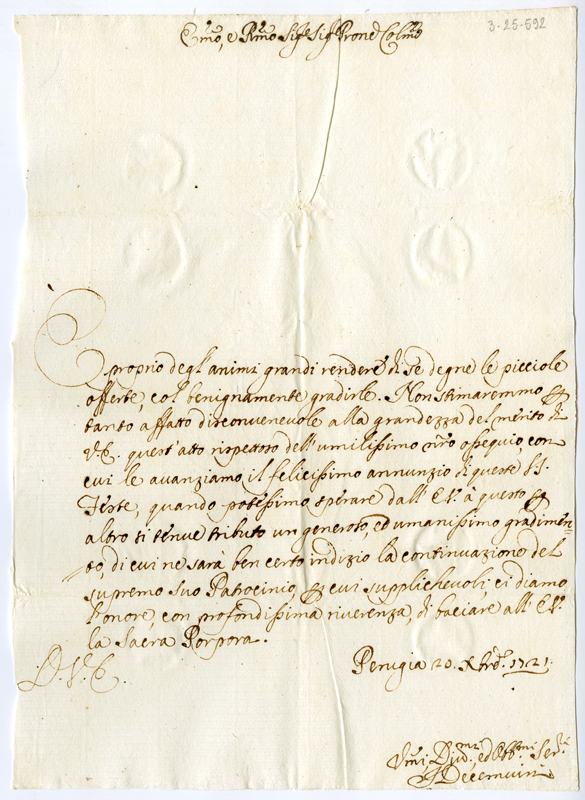 3-25-592
Em̃o, e Rm̃o Sig.e Sig.e Prone Colmõ
È proprio degl'animi grandi rendere di se degne le picciole
offerte, col benignamente gradirle. Non stimaremmo p
tanto affatto disconvenevole alla grandezza del merito di
V.E. quest'atto rispettoso dell'umilissimo nr̃o ossequio, con
cui le avanziamo il felicissimo annunzio di queste S.S.
Feste, quando potessimo sperare dall'E.V. à questo p
altro si tenue tributo un generoso, ed umanissimo gradimen-
to, di cui ne sarà ben certo indizio la continuazione del
supremo suo Patrocinio, p cui supplichevoli, ci diamo
l'onore, con profondissima riverenza, di baciare all'E.V.
la Sacra Porpora.
Perugia 20. Xbre. 1721.
D. V. E.
Vm̃i, Div.mi ed Obb.mi Ser.i
I Decemviri